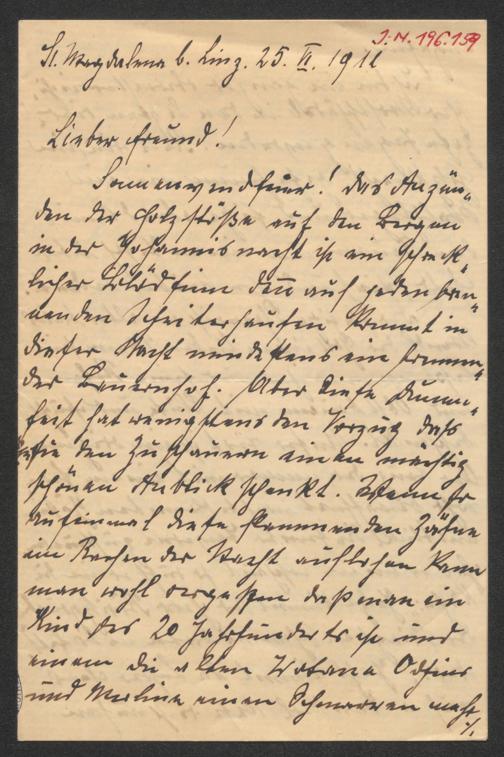 J.N. 196.159
St. Magdalena b. Linz. 25. VI. 1911
Lieber Freund!
Sonnenwendfeuer! Das Anzün-
den der Holzstöße auf den Bergen
in der Johannisnacht ist ein schreck-
licher Blödsinn denn auf jeden bren-
nenden Scheiterhaufen kommt in
dieser Nacht mindestens ein brennen-
der Bauernhof. Aber diese Dumm-
heit hat wenigstens den Vorzug dass
sie den Zuschauern einen mächtig
schönen Anblick schenkt. Wenn so
aufeinmal diese flammenden Zähne
im Rachen der Nacht auflohen kann
man wohl vergessen daß man ein
Kind des 20 Jahrhunderts ist und
einem die alten Wotane Odhins
und Merline einen Schmarren mehr
./.